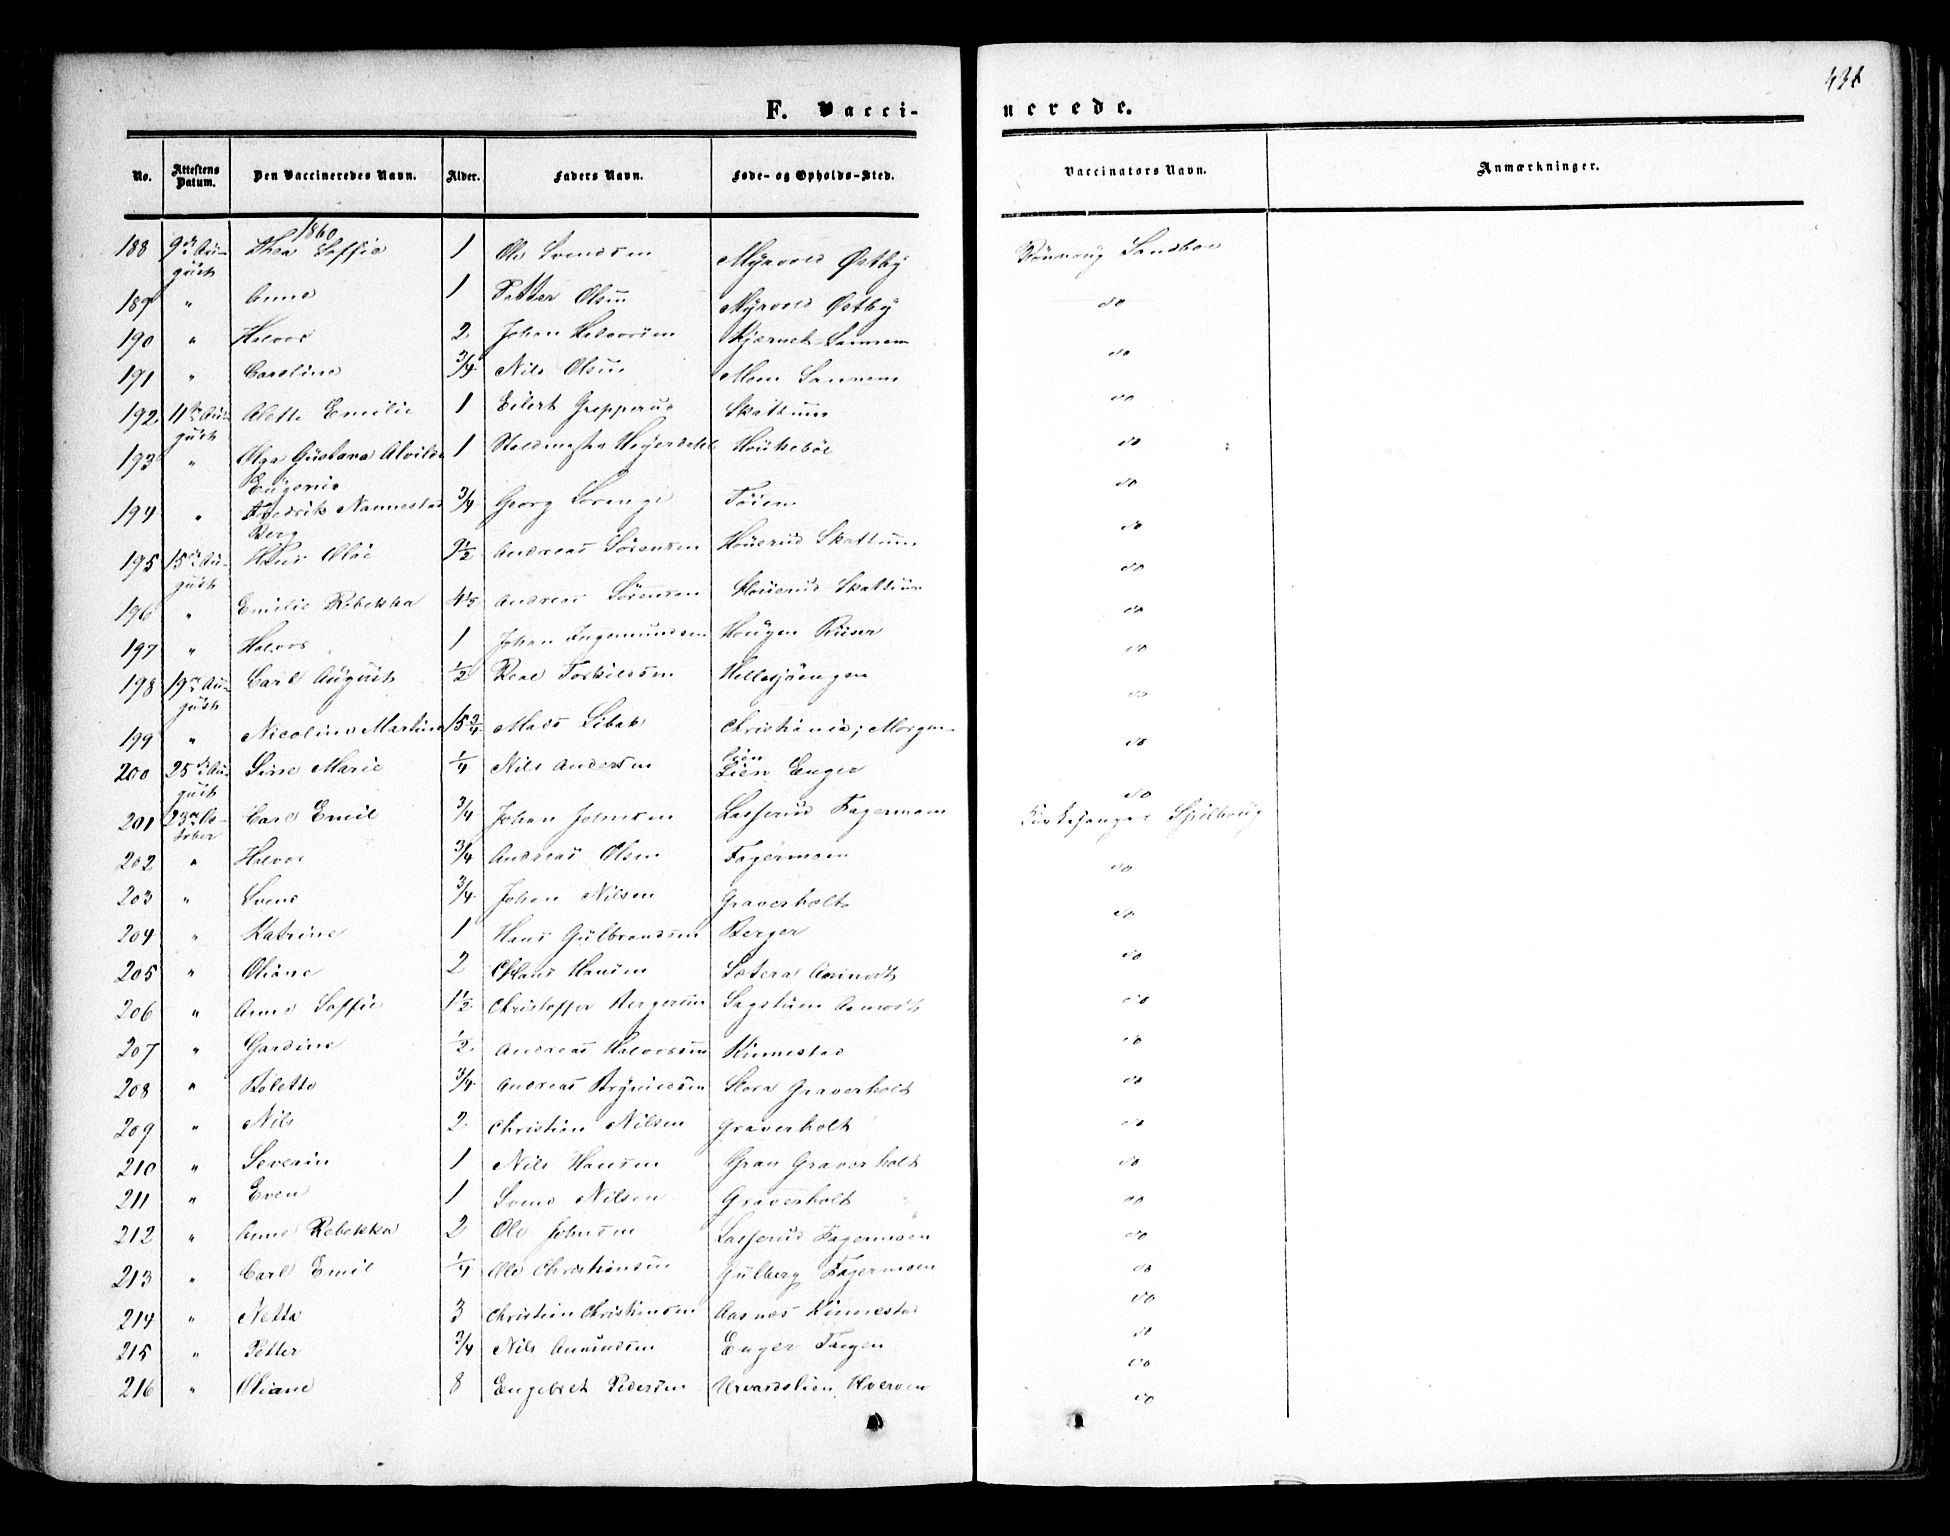 431
F. Vacci-
nerede.
No. Attestens Datum. Den Vaccineredes Navn. Alder. Faders Navn. Føde- og Opholds-Sted. Vaccinators Navn. Anmærkninger.
1860
188 9de Au- gust Thea Soffie 1 Ole Svendsen Myrvold Østby Rønnaug Sandboe
189 " Anne 1 Petter Olsen Myrvold Østby do
190 " Halvor 2 Johan Halvorsen Kjærnet Sannem do
191 " Caroline 3/4 Nils Olsen Moen Sannem do
192 11te Au- gust Alette Emilie 1 Eilert Grepperud Skattum do
193 " Olga Gustava Alvilde Eugenie 1 Staldmester Heyerdahl Houkeboe do
194 " Fredrik Nannestad Berg 3/4 Georg Lorange Tøien do
195 15de Au- gust Hans Olai 9 1/2 Andreas Sørensen Houerud Skattum do
196 " Emilie Rebekka 4 1/2 Andreas Sørensen Houerud Skattum do
197 " Halvor 1 Johan Ingemundsen Hougen Ruser do
198 19de Au- gust Carl August 1/2 Roal Torkildsen Hellesjøengen do
199 " Nicoline Martine 15 3/4 Mads Libak Christiania; Morgen- lien do
200 25de Au- gust Lisse Marie 1/4 Nils Andersen Lien Enger do
201 23de Oc- tober Carl Emil 3/4 Johan Johnsen Lasserud Fagermoen Kirkesanger Spilhoug
202 " Halvor 3/4 Andreas Olsen Fagermoen do
203 " Svend 3/4 Johan Nilsen Graverholt do
204 " Katrine 1 Hans Gulbrandsen Berger do
205 " Oliane 2 Hans Hansen Sætera Aamodt do
206 " Anne Soffie 1 1/2 Christoffer Bergersen Sagstuen Aamodt do
207 " Gardine 1/2 Andreas Halvorsen Kinnestad do
208 " Bolette 3/4 Andreas Brynildsen Stora Graverholt do
209 " Nils 2 Christian Nilsen Graverholt do
210 " Severin 1 Nils Hansen Gran Graverholt do
211 " Even 1 Svend Nilsen Graverholt do
212 " Anne Rebekka 2 Ole Johnsen Lasserud Fagermoen do
213 " Carl Emil 1/4 Ole Christiansen Gulberg Fagermoen do
214 " Netta 3 Christian Christiansen Aasnes Kinnestad do
215 " Petter 3/4 Nils Amundsen Enger Faegen do
216 " Oliane 8 Engebret Pedersen Urvardslien Hverven do